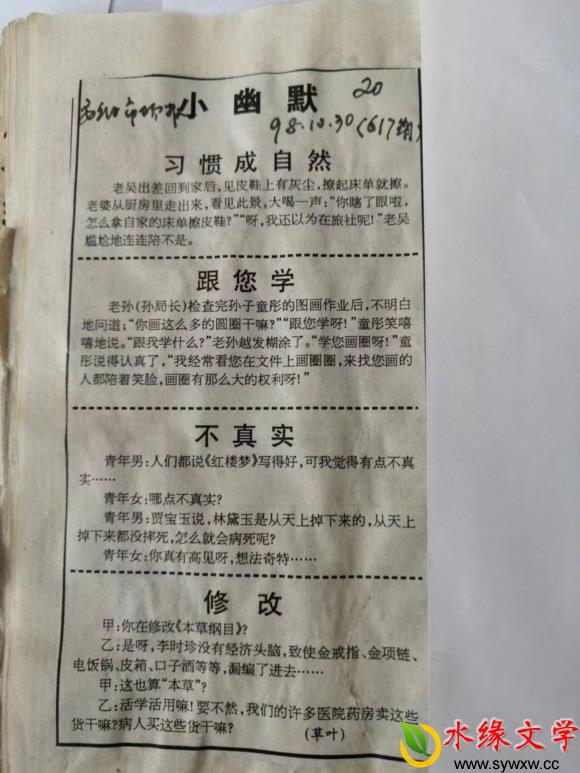 20
小幽默
98.10.30(617期)
习惯成自然
老吴出差回到家后,见皮鞋上有灰尘,撩起床单就擦。
老婆从厨房里走出来,看见此景,大喝一声:“你瞎了眼啦,
怎么拿自家的床单擦皮鞋?”“呀,我还以为在旅社呢!”老吴
尴尬地连连陪不是。
跟您学
老孙(孙局长)检查完孙子童彤的图画作业后,不明白
地问道;“你画这么多的圆圈干嘛?”“跟您学呀!”童彤笑嘻
嘻地说。“跟我学什么?”老孙越发糊涂了。“学您画圈呀!”童
彤说得认真了,“我经常看您在文件上画圈圈,来找您画的
人都陪着笑脸,画圈有那么大的权利呀!”
不真实
青年男:人们都说《红楼梦》写得好,可我觉得有点不真
实……
青年女:哪点不真实?
青年男:贾宝玉说,林黛玉是从天上掉下来的,从天上
掉下来都没摔死,怎么就会病死呢?
青年女:你真有高见呀,想法奇特……
修改
甲:你在修改《本草纲目》?
乙:是呀,李时珍没有经济头脑,致使金戒指、金项链、
电饭锅、皮箱、口子酒等等,漏编了进去……
甲:这也算“本草”?
乙:活学活用嘛!要不然,我们的许多医院药房卖这些
货干嘛?病人买这些货干嘛?
(草叶)
水缘文学
www.sywxw.cc